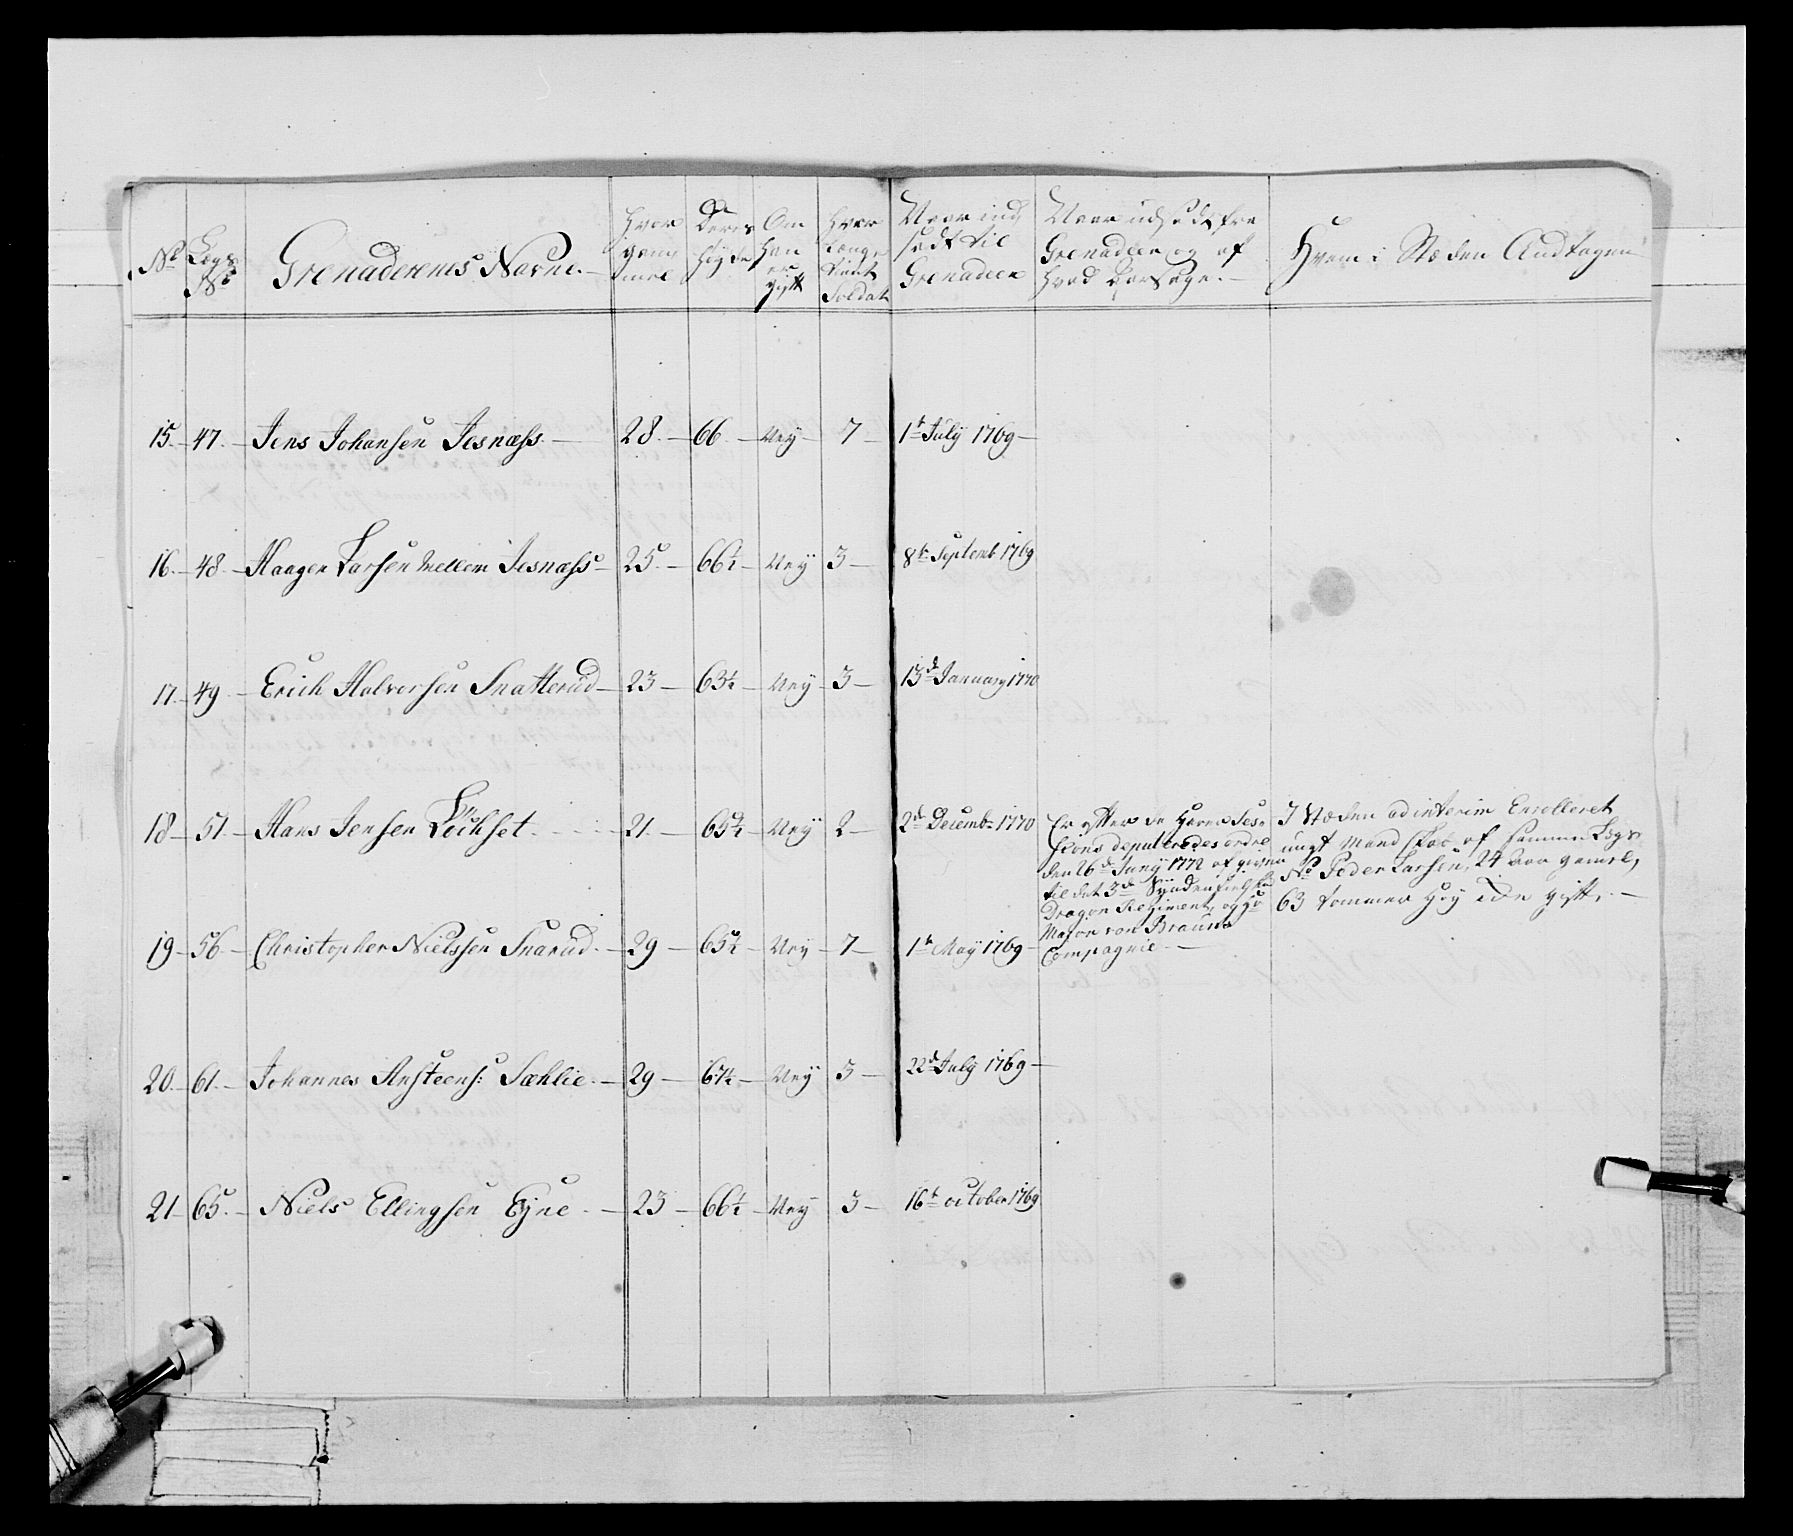 No Legs No Grenaderenes Navne Hvor gam̄el Deres Høyde Om Hand er gift Hvor længe tient Soldat Naar indsadt til Grenadeer Naar udsadt fra Grenadeer og af Hvad Aarsage. Hvem i Stæden Andtagen
15. 47. Jens Johansen Jesnæss 28. 66. Ney 7 1t July 1769
16. 48. Haagen Larsen Mellem Jesnæss 25. 66½ Ney 3 8t Septemb 1769
17. 49. Erich Halvorsen Snatterud 23 63½ Ney 3 13de January 1770
18 51. Hans Jensen Löchset 21. 65½ Ney 2 2d Decembr 1770
Er efter de Herrer Ses-
sions deputeredes ordre
den 26de Juny 1772 afgiven
til det 3de Syndenfieldske
Dragon Regiment, og
Major von Brauns
Compagnie
I Stæden ad interim Enrolleret
ungt Mandskab af samme Legs
No Peder Larsen, 24 aar gamel,
63 tommer høy ej gift.
19 56. Christopher Nielssen Snarud 29 65½ Ney 7 1t May 1769
20. 61. Johannes Ansteens: Sæhlie 29 67½ Ney 5 22d July 1769
21 65. Niels Ellingsen Eyne 23 66½ Ney 3 16t october 1769